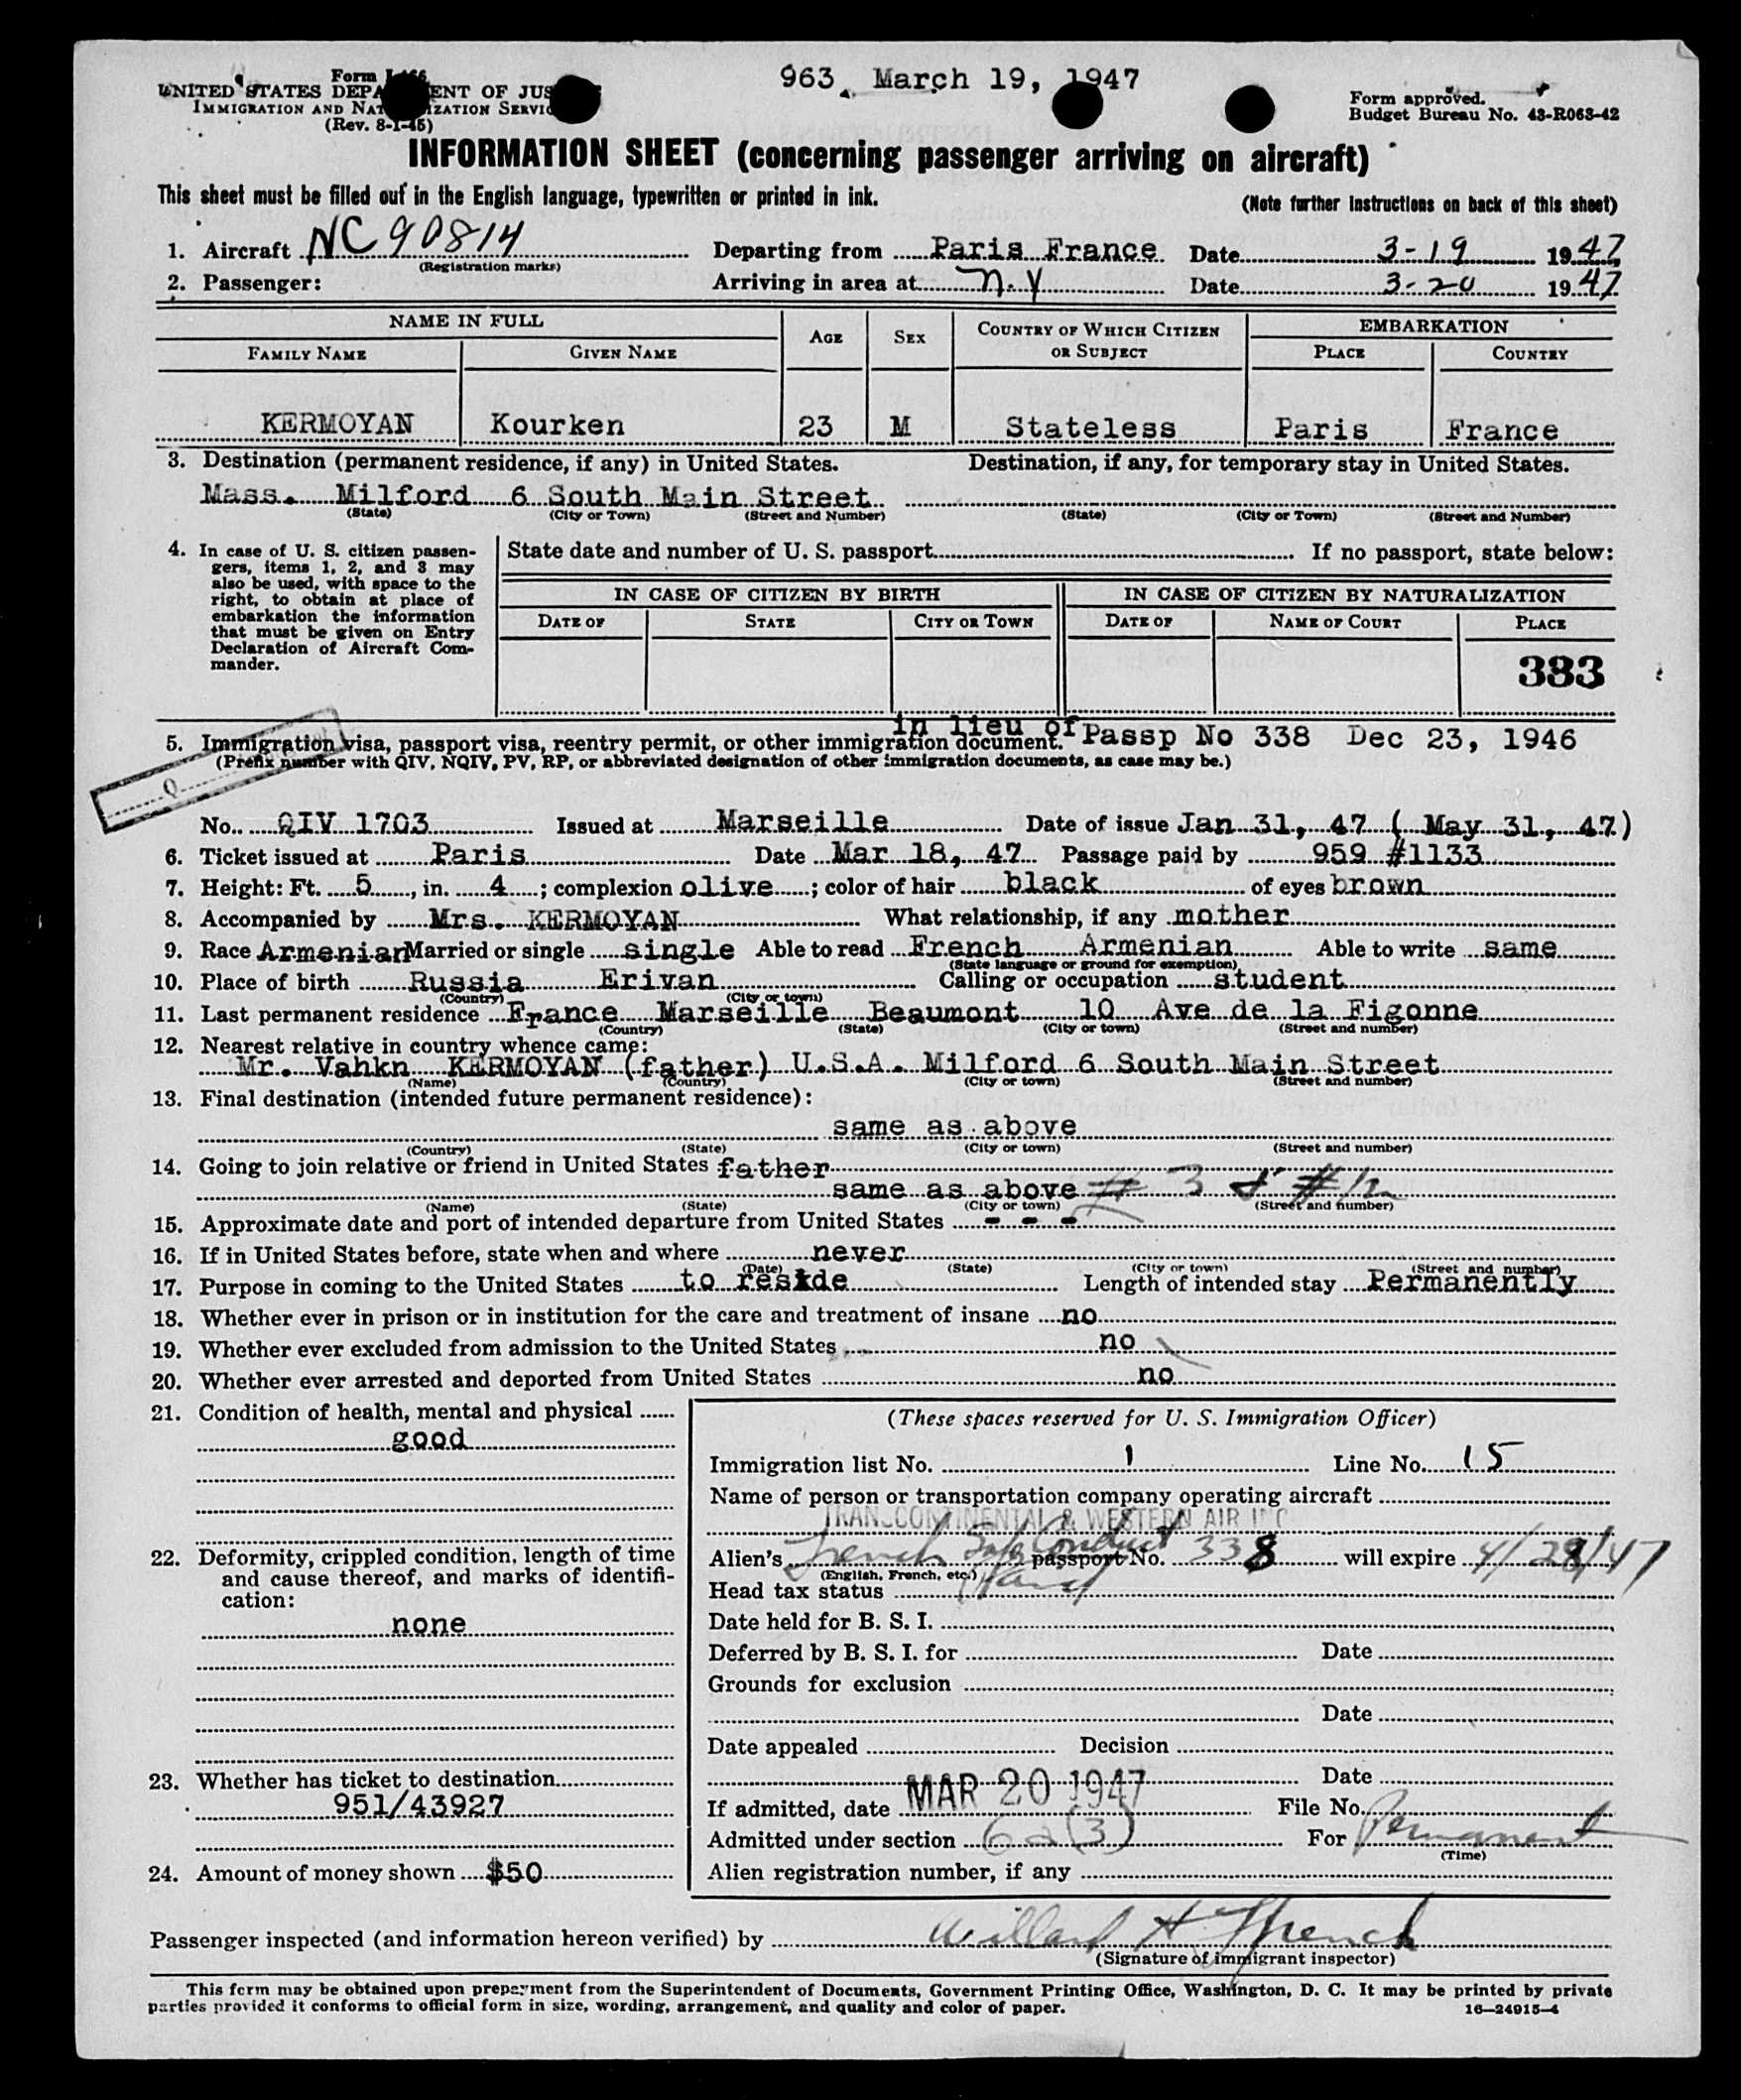 963, March 19, 1947
Form
UNITED STATES DEPARTMENT OF JUSTICE
IMMIGRATION AND NATURALIZATION SERVICE
(Rev. 8-1-45)
Form approved.
Budget Bureau No. 43-R063-42
INFORMATION SHEET (concerning passenger arriving on aircraft)
This sheet must be filled out in the English language, typewritten or printed in ink.
(Note further instructions on back of this sheet)
1. Aircraft NC 90814 Departing from Paris France Date 3-19 1947
(Registration marks)
2. Passenger: Arriving in area at N.Y Date 3-20 1947
NAME IN FULL AGE SEX COUNTRY OF WHICH CITIZEN OR SUBJECT EMBARKATION
FAMILY NAME GIVEN NAME PLACE COUNTRY
KERMOYAN Kourken 23 M Stateless Paris France
3. Destination (permanent residence, if any) in United States. Destination, if any, for temporary stay in United States.
Mass. Milford 6 South Main Street
(State) (City or Town) (Street and Number) (State) (City or Town) (Street and Number)
4. In case of U. S. citizen passen-
gers, items 1, 2, and 3 may
also be used, with space to the
right, to obtain at place of
embarkation the information
that must be given on Entry
Declaration of Aircraft Com-
mander.
State date and number of U. S. passport If no passport, state below:
IN CASE OF CITIZEN BY BIRTH IN CASE OF CITIZEN BY NATURALIZATION
DATE OF STATE CITY OR TOWN DATE OF NAME OF COURT PLACE
383
in lieu of Passp No 338 Dec 23, 1946
5. Immigration visa, passport visa, reentry permit, or other immigration document.
(Prefix number with QIV, NQIV, PV, RP, or abbreviated designation of other immigration documents, as case may be.)
Q
No. QIV 1703 Issued at Marseille Date of issue Jan 31, 47 ( May 31, 47)
6. Ticket issued at Paris Date Mar 18, 47 Passage paid by 959 #1133
7. Height: Ft. 5, in. 4; complexion olive; color of hair black of eyes brown
8. Accompanied by Mrs. KERMOYAN What relationship, if any mother
9. Race Armenian Married or single single Able to read French Armenian Able to write same
(State language or ground for exemption)
10. Place of birth Russia Erivan Calling or occupation student
(Country) (City or town)
11. Last permanent residence France Marseille Beaumont 10 Ave de la Figonne
(Country) (State) (City or town) (Street and number)
12. Nearest relative in country whence came:
Mr. Vahkn KERMOYAN (father) U.S.A. Milford 6 South Main Street
(Name) (Country) (City or town) (Street and number)
13. Final destination (intended future permanent residence):
same as above
(Country) (State) (City or town) (Street and number)
14. Going to join relative or friend in United States father
same as above # 3 & #12
(Name) (State) (City or town) (Street and number)
15. Approximate date and port of intended departure from United States - - -
16. If in United States before, state when and where never
(Date) (State) (City or town) (Street and number)
17. Purpose in coming to the United States to reside Length of intended stay Permanently
18. Whether ever in prison or in institution for the care and treatment of insane no
19. Whether ever excluded from admission to the United States no
20. Whether ever arrested and deported from United States no
21. Condition of health, mental and physical
good
22. Deformity, crippled condition, length of time
and cause thereof, and marks of identifi-
cation:
none
23. Whether has ticket to destination
951/43927
24. Amount of money shown $50
(These spaces reserved for U. S. Immigration Officer)
Immigration list No. 1 Line No. 15
Name of person or transportation company operating aircraft
TRANSCONTINENTAL & WESTERN AIR INC
Alien's French Safe Conduct passport No. 338 will expire 4/28/47
(English, French, etc.)
Head tax status
Date held for B. S. I.
Deferred by B. S. I. for Date
Grounds for exclusion
Date
Date appealed Decision
Date
If admitted, date MAR 20 1947 File No.
Admitted under section 6a(3) For Permanent
(Time)
Alien registration number, if any
Passenger inspected (and information hereon verified) by Willard H French
(Signature of immigrant inspector)
This form may be obtained upon prepayment from the Superintendent of Documents, Government Printing Office, Washington, D. C. It may be printed by private
parties provided it conforms to official form in size, wording, arrangement, and quality and color of paper. 16—24915-4